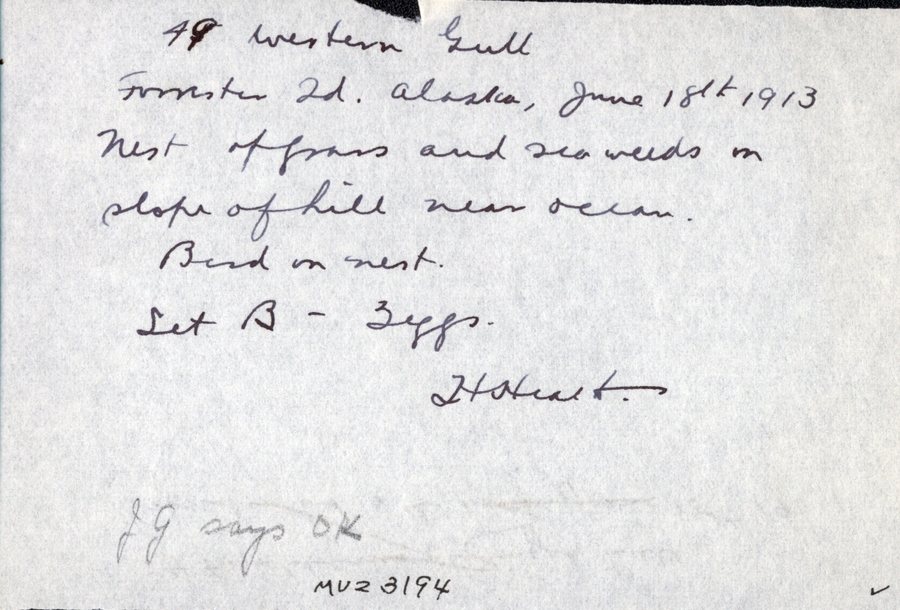 49 Western Gull
Forrester Id. Alaska, June 18th 1913
Nest of grass and seaweeds on
slope of hill near ocean.
Bird on nest.
Set B - 3 eggs.
JG says OK
MVZ 3194